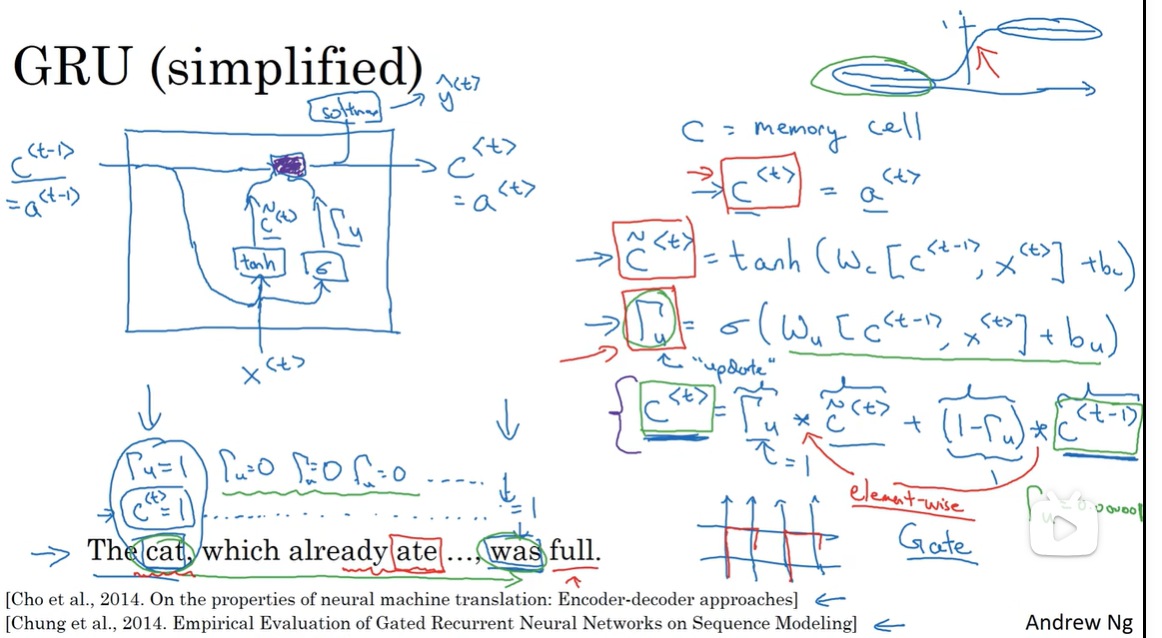 GRU (simplified)
softmax → ŷ<t>
c<t-1> = a<t-1>
c<t> = a<t>
c̃<t> Γu
tanh σ
x<t>
1
c = memory cell
→ c<t> = a<t>
→ c̃<t> = tanh (Wc [c<t-1>, x<t>] + bc)
→ Γu = σ (Wu [c<t-1>, x<t>] + bu)
"update"
c<t> = Γu * c̃<t> + (1-Γu) * c<t-1>
= 1
element-wise
Gate
Γu=1 Γu=0 Γu=0 Γu=0 .....
c<t>=1 .......... = 1
→ The cat, which already ate ..., was full.
[Cho et al., 2014. On the properties of neural machine translation: Encoder-decoder approaches] ←
[Chung et al., 2014. Empirical Evaluation of Gated Recurrent Neural Networks on Sequence Modeling] ←
Andrew Ng